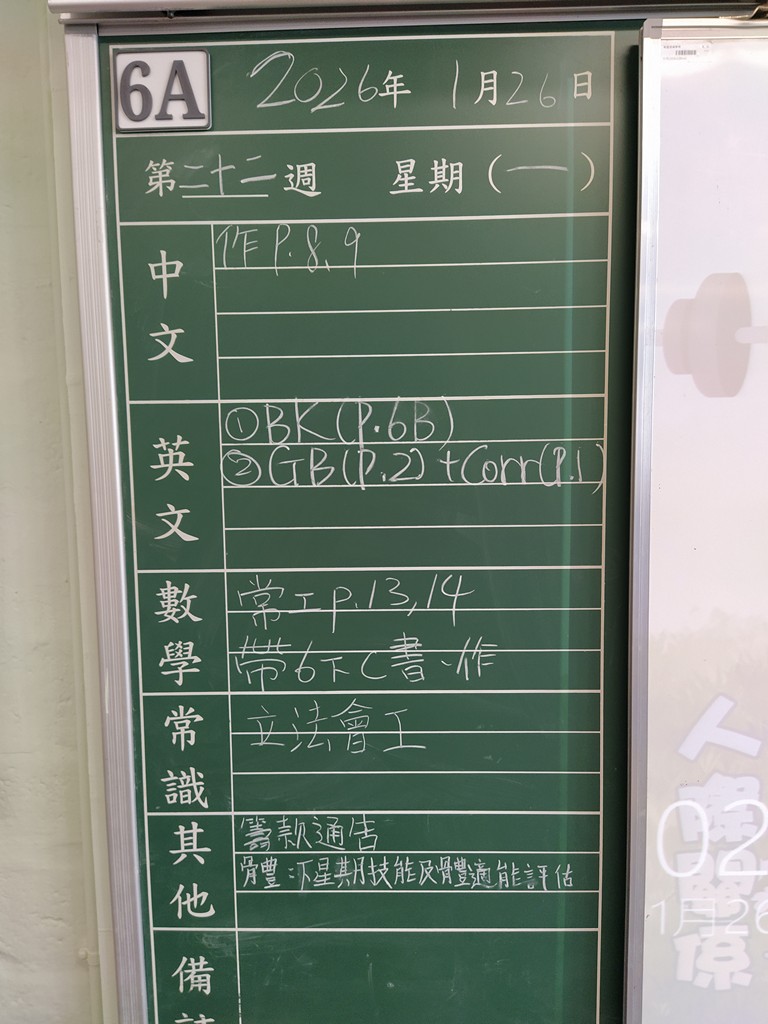 6A
2026年 1月26日
第二十二週 星期(一)
中文
作 P.8,9
英文
①BK(P.6B)
②GB(P.2)+Corr(P.1)
數學
常工p.13,14
帶6下C書、作
常識
立法會工
其他
籌款通告
體:下星期技能及體適能評估
備
人際關係
02
1月26